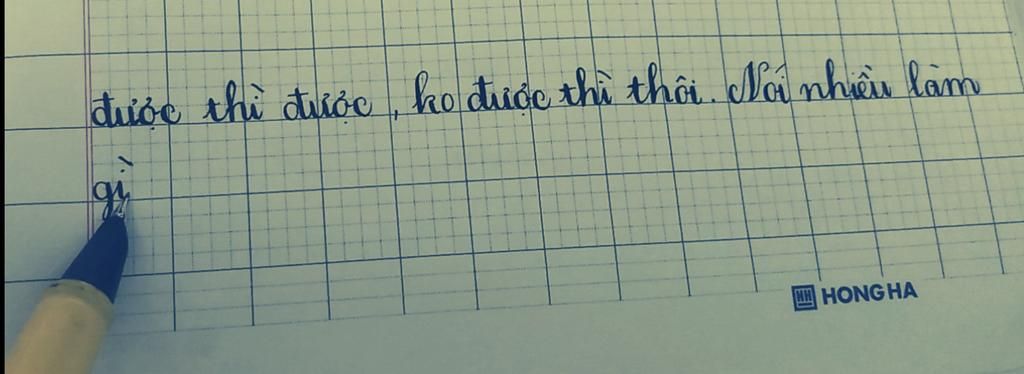 được thì được, ko được thì thôi. Nói nhiều làm
gì
HH HONG HA